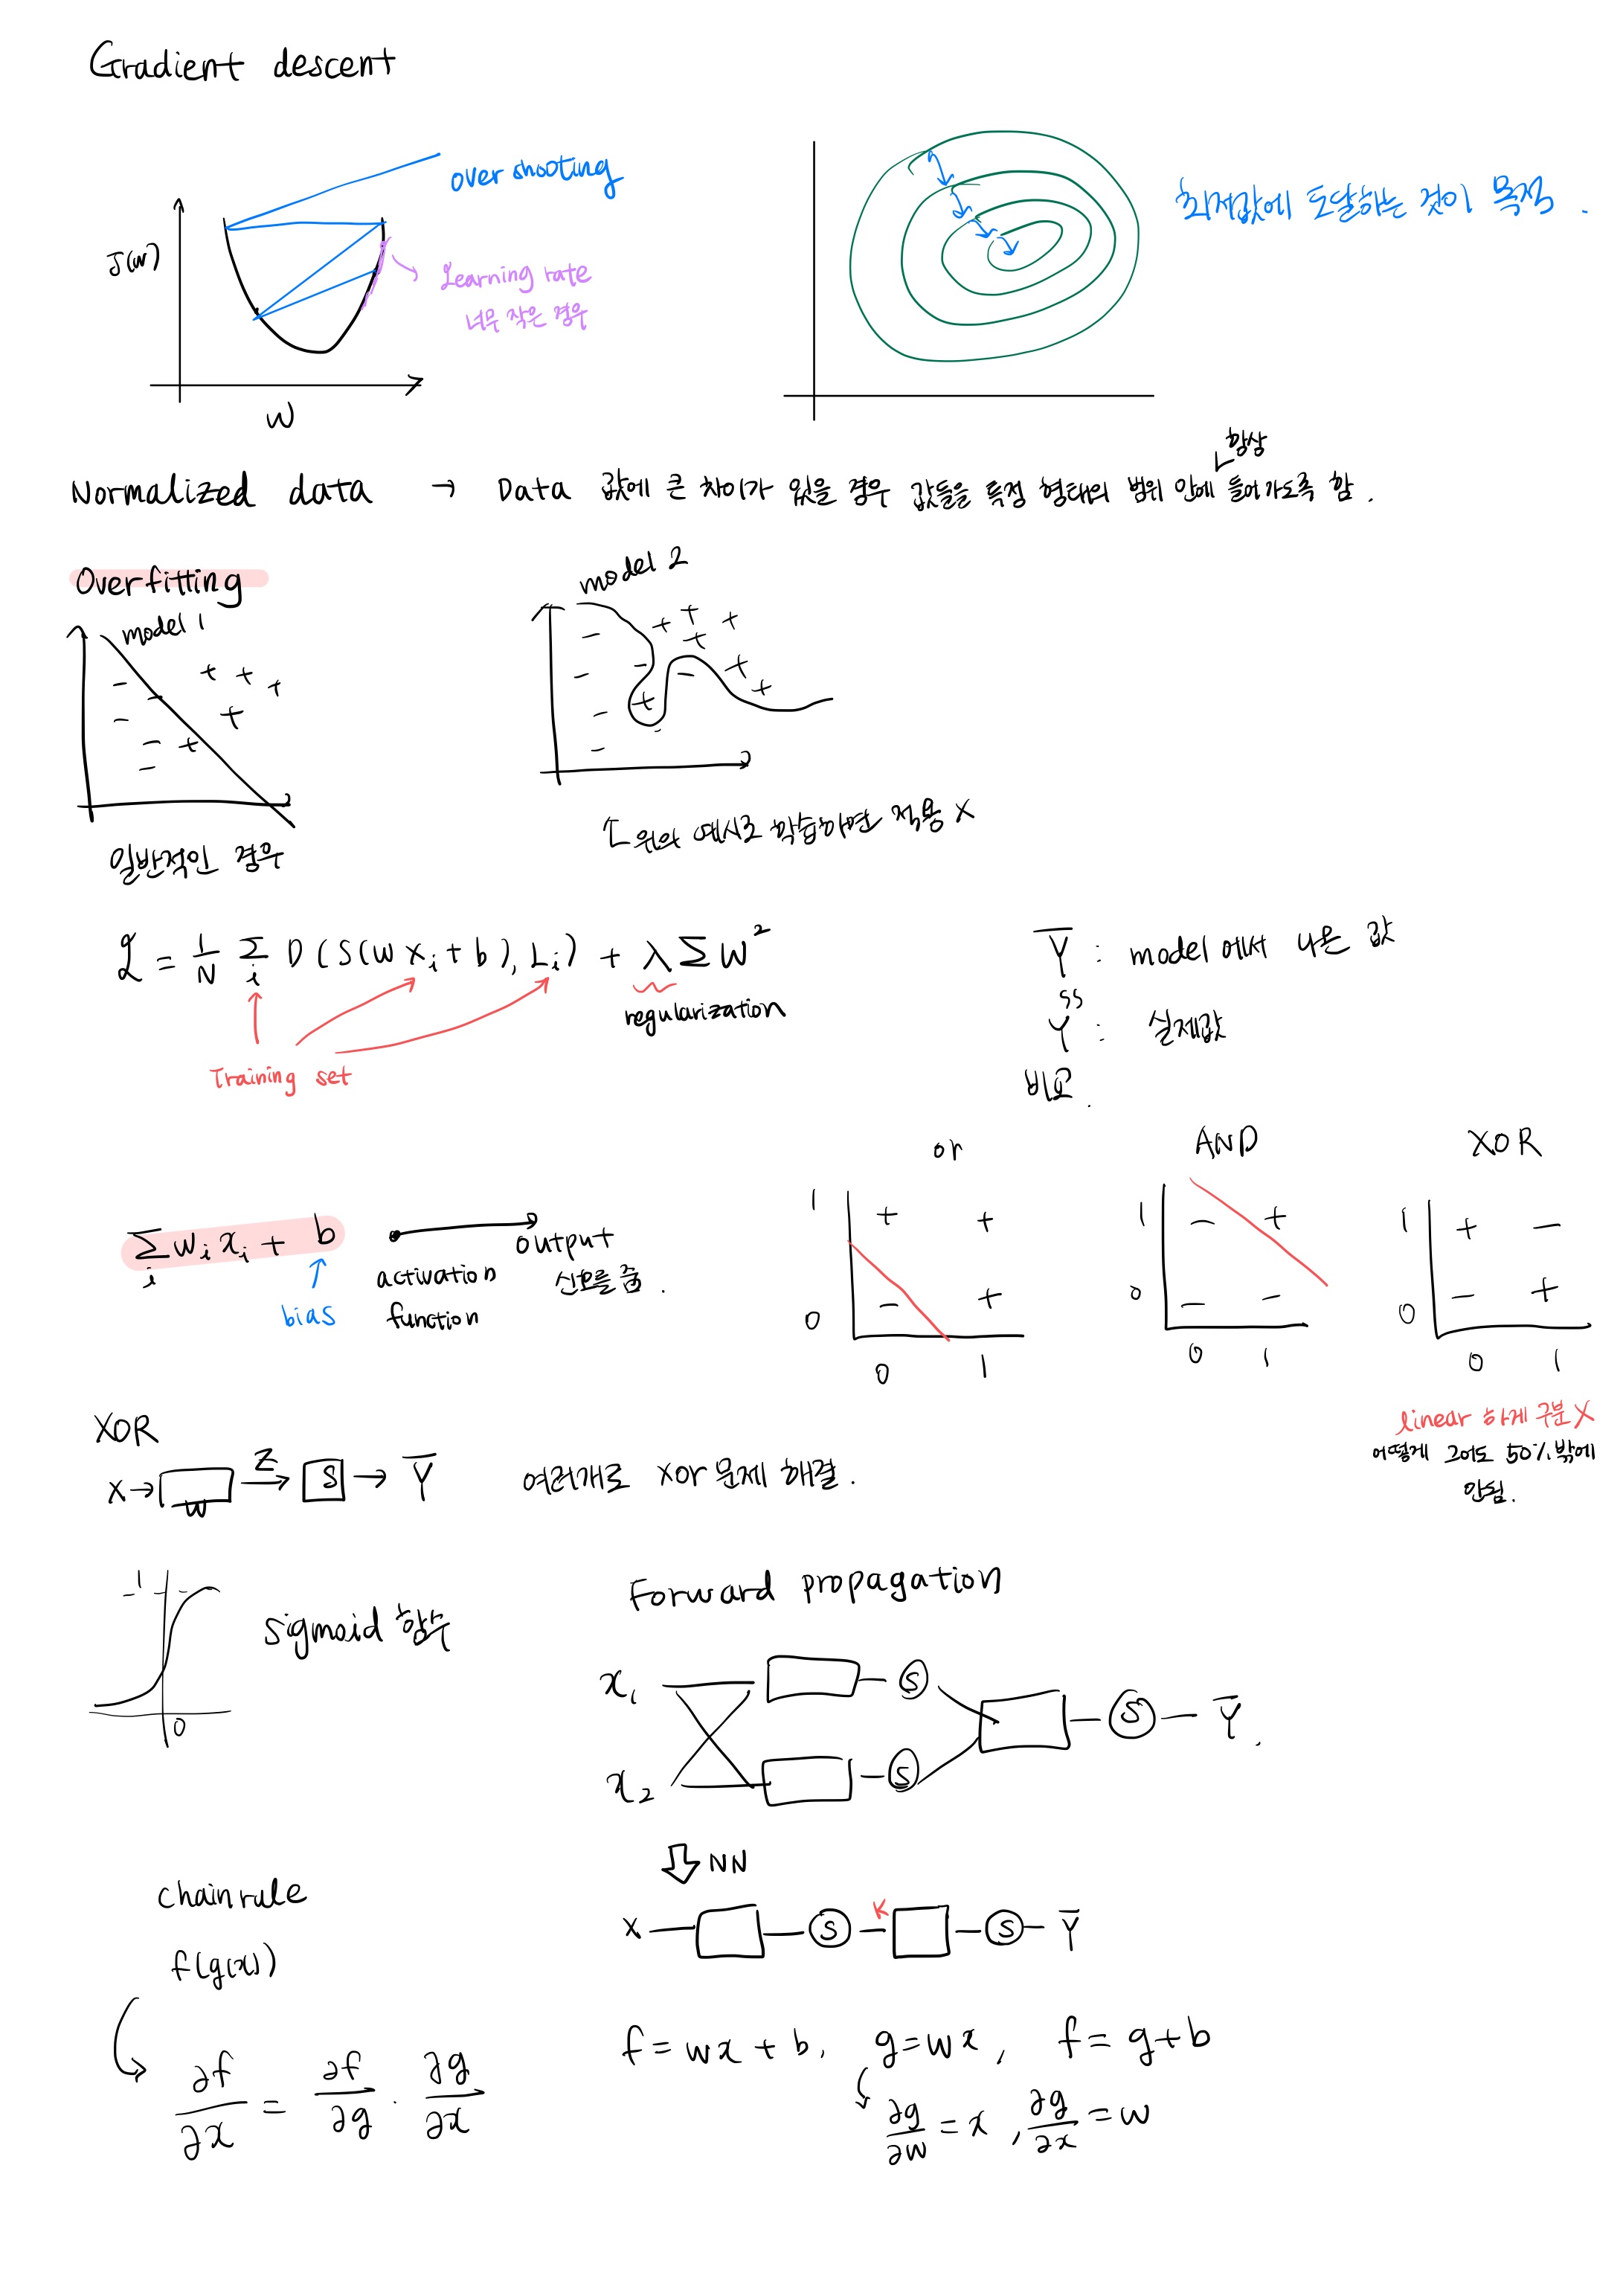 Gradient descent
overshooting
J(w)
Learning rate
너무 작은 경우
W
최저값에 도달하는 것이 목적.
Normalized data → Data 값에 큰 차이가 있을 경우 값들을 특정 형태의 범위 안에 항상 들어가도록 함.
Overfitting
model 1
- - - - - + + + + +
일반적인 경우
model 2
- - - - - - + + + + + + +
위의 예시로 학습하면 적용 X
ℒ = 1/N Σᵢ D(S(wxᵢ+b), Lᵢ) + λΣw²
regularization
Training set
Ȳ : model에서 나온 값
SS
Y : 실제값
비교.
Σᵢ wᵢxᵢ + b
bias
activation
function
output
신호를 줌.
or
1 + +
0 - +
0 1
AND
1 - +
0 - -
0 1
XOR
1 + -
0 - +
0 1
linear 하게 구분 X
어떻게 그어도 50%밖에
안됨.
XOR
X → W Z → S → Ȳ
여러개로 xor 문제 해결.
-1
0
sigmoid 함수
Forward propagation
x₁ S
x₂ S
S Ȳ.
NN
X S K S Ȳ
chain rule
f(g(x))
∂f/∂x = ∂f/∂g · ∂g/∂x
f = wx + b, g = wx, f = g + b
∂g/∂w = x, ∂g/∂x = w